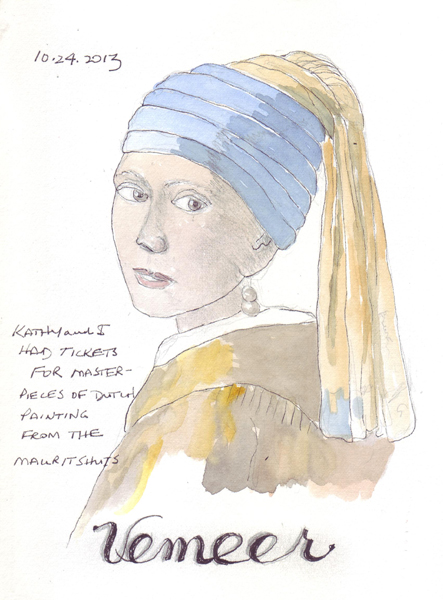 10.24.2013
KATHY and I
HAD TICKETS
FOR MASTER-
PIECES OF DUTCH
PAINTING
FROM THE
MAURITSHUIS
Vemeer